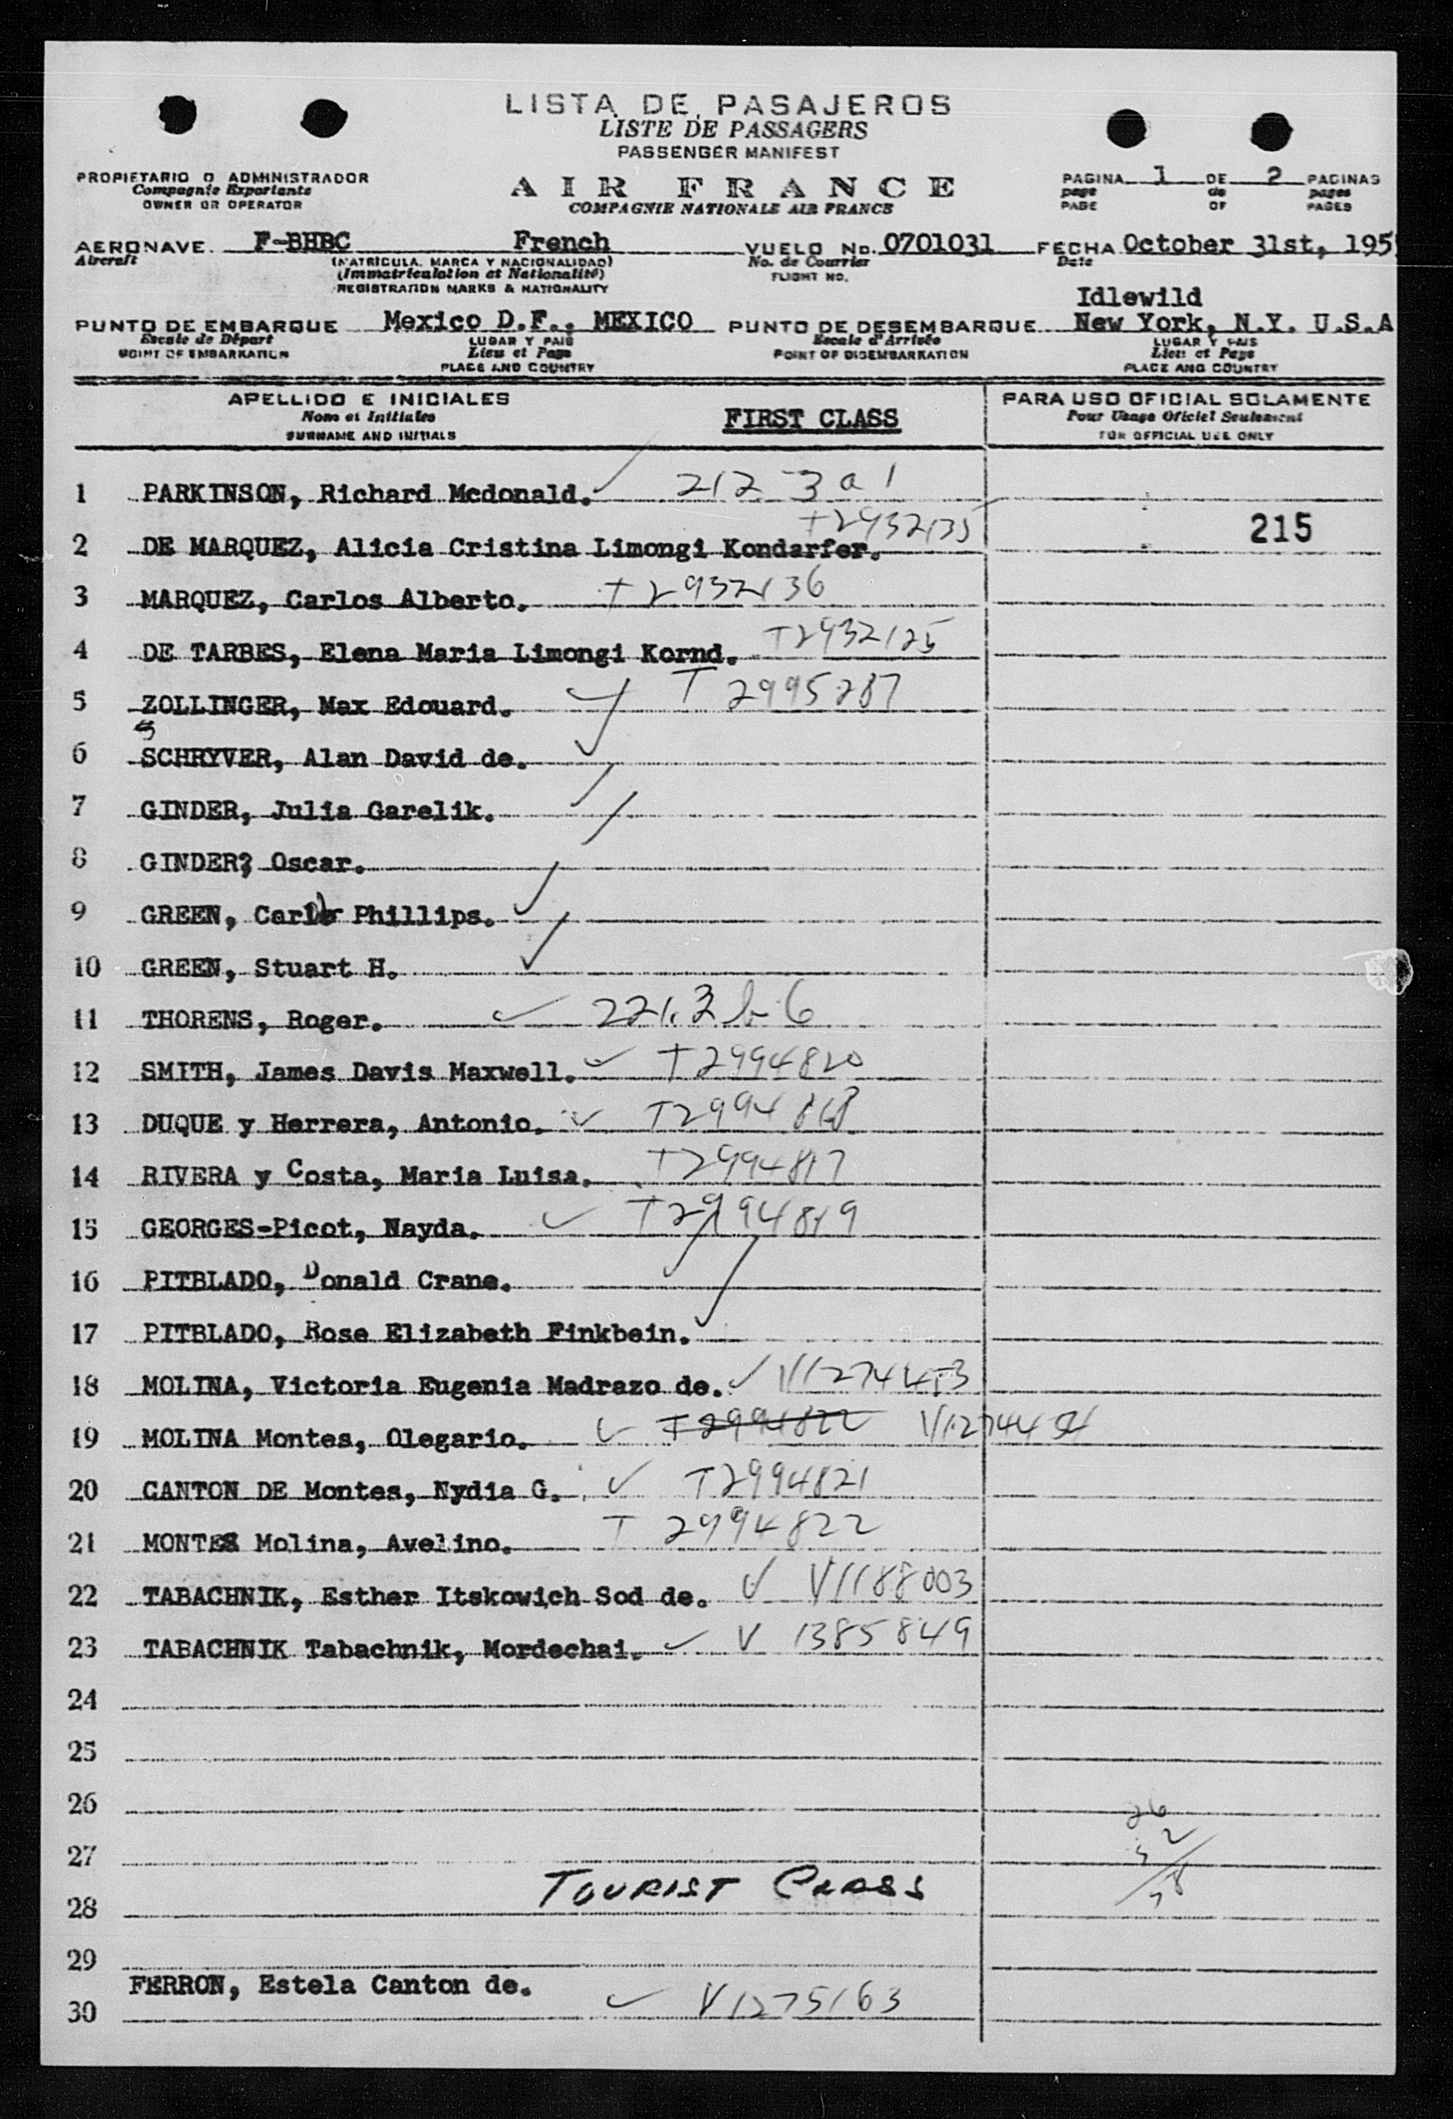 LISTA DE PASAJEROS
LISTE DE PASSAGERS
PASSENGER MANIFEST
PROPIETARIO O ADMINISTRADOR
Compagnie Exportante
OWNER OR OPERATOR
AIR FRANCE
COMPAGNIE NATIONALE AIR FRANCE
PAGINA 1 DE 2 PAGINAS
page de pages
PAGE OF PAGES
AERONAVE. F-BHBC French VUELO No. 0701031 FECHA October 31st, 195
Aircraft (MATRICULA. MARCA Y NACIONALIDAD) No. de Courrier Date
(Immatriculation et Nationalité) FLIGHT NO.
REGISTRATION MARKS & NATIONALITY
Idlewild
PUNTO DE EMBARQUE Mexico D.F., MEXICO PUNTO DE DESEMBARQUE New York, N.Y. U.S.A
Escale de Départ LUGAR Y PAIS Escale d'Arrivée LUGAR Y PAIS
POINT OF EMBARKATION Lieu et Pays POINT OF DISEMBARKATION Lieu et Pays
PLACE AND COUNTRY PLACE AND COUNTRY
APELLIDO E INICIALES PARA USO OFICIAL SOLAMENTE
Nom et Initiales FIRST CLASS Pour Usage Oficiel Seulement
SURNAME AND INITIALS FOR OFFICIAL USE ONLY
1 PARKINSON, Richard Mcdonald. 212 3 a 1
T2932135 215
2 DE MARQUEZ, Alicia Cristina Limongi Kondarfer.
3 MARQUEZ, Carlos Alberto. T2932136
4 DE TARBES, Elena Maria Limongi Kornd. T2932125
5 ZOLLINGER, Max Edouard. T 2995287
6 SCHRYVER, Alan David de.
7 GINDER, Julia Garelik.
8 GINDER, Oscar.
9 GREEN, Phillips.
10 GREEN, Stuart H.
11 THORENS, Roger. 221.3 b-6
12 SMITH, James Davis Maxwell. T2994820
13 DUQUE y Herrera, Antonio. T2994818
14 RIVERA y Costa, Maria Luisa. T2994817
15 GEORGES-Picot, Nayda. T2994819
16 PITBLADO, Donald Crane.
17 PITBLADO, Rose Elizabeth Finkbein.
18 MOLINA, Victoria Eugenia Madrazo de. V1274453
19 MOLINA Montes, Olegario. T2994822 V1274454
20 CANTON DE Montes, Nydia G. T2994821
21 MONTES Molina, Avelino. T 2994822
22 TABACHNIK, Esther Itskowich Sod de. V1188003
23 TABACHNIK Tabachnik, Mordechai. V 1385849
24
25
26
26
27
TOURIST CLASS
28
29
FERRON, Estela Canton de.
30 V1275163